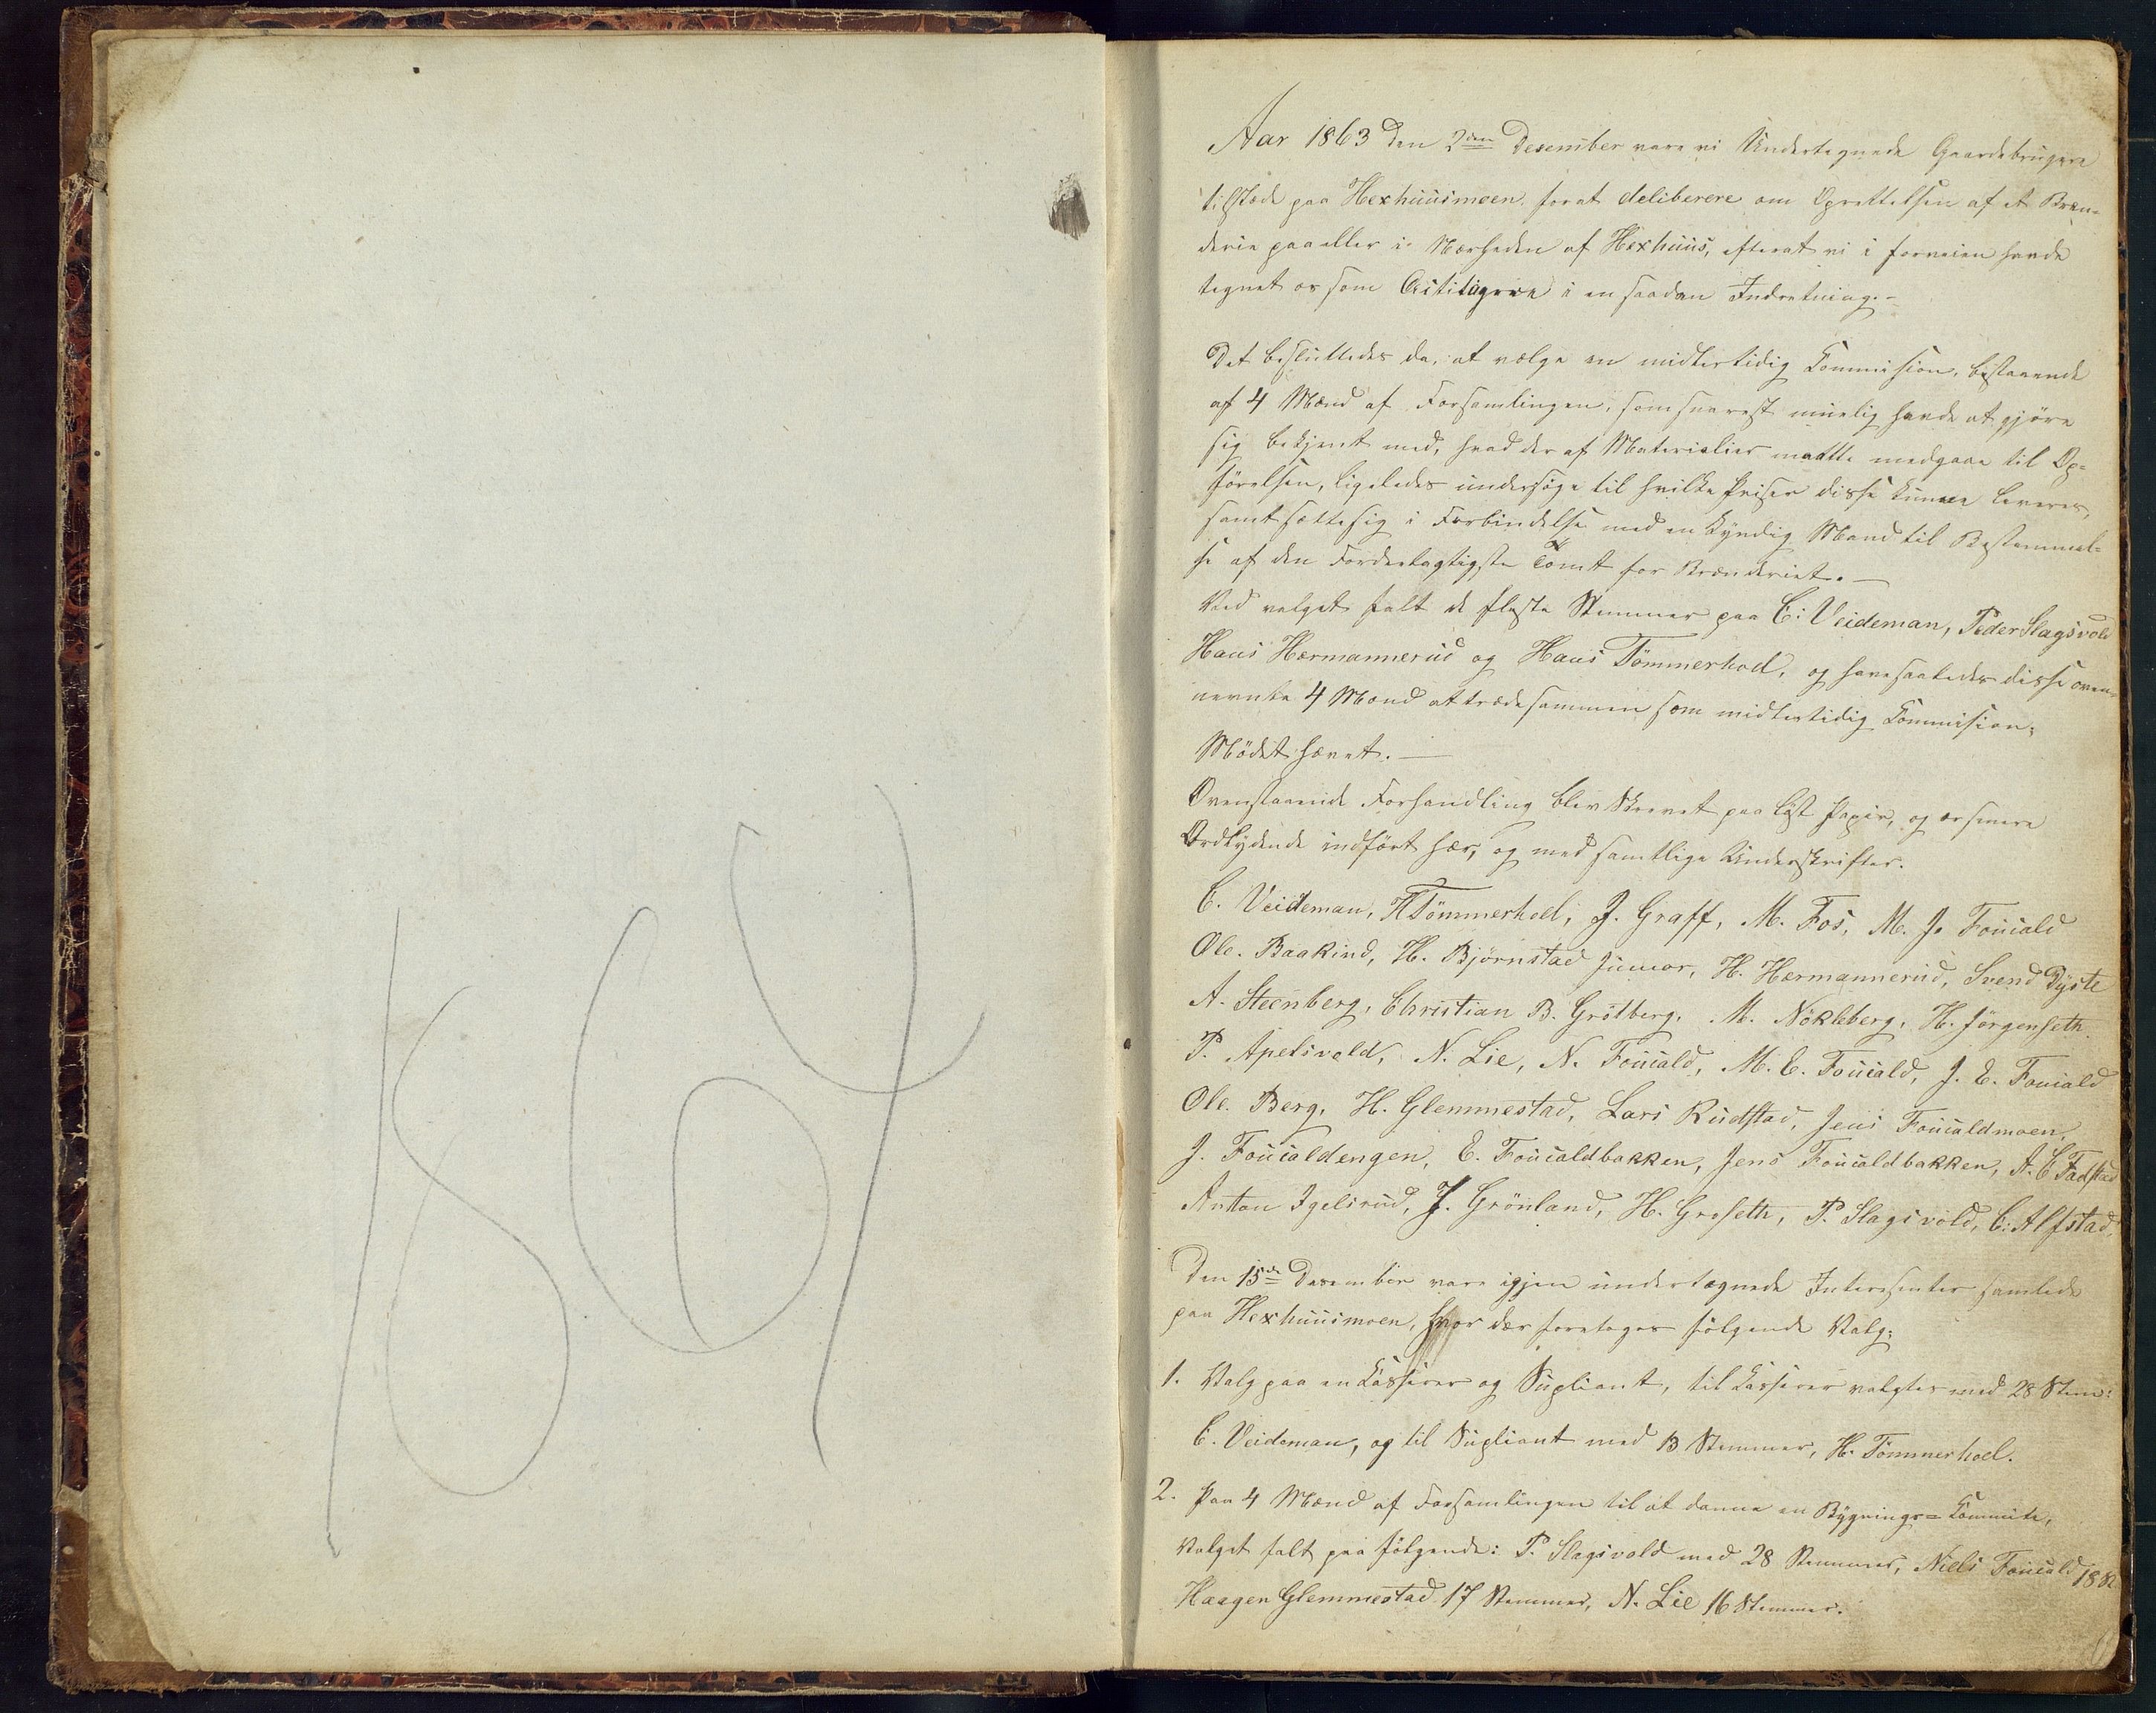 1864
Aar 1863 den 2den Desember vare vi Undertegnede Gaardebrugere
tilstæde paa Hexhuusmoen forat deliberere om Oprettelsen af et Bræn-
derie paa eller i Nærheden af Hexhuus, efterat vi i forveien havde
tegnet os som i en saadan Indretning.-
Det besluttedes da, at vælge en midlertidig Commision, bestaaende
af 4 Mænd af Forsamlingen, som snarest muelig havde at gjöre
sig bekjent med, hvad der af Materialier maatte medgaae til Op-
förelsen, ligeledes undersöge til hvilke Priser disse kunne leveres,
samt sætte sig i Forbindelse med en kyndig Mand til Bestemmel-
se af den Fordeelagtigste Tomt for Brænderiet. —
Ved valget falt de fleste Stemmer paa C: Veideman, Peder Slagsvold
Hans Hærmannerud og Hans Tömmerhoel, og have saaledes disse oven-
nevnte 4 Mænd at træde sammen som midlertidig Commision,
Mödet hævet. —
Ovenstaaende Forhandling blev Skrevet paa löst Papir, og er senere
Ordlydende indfört her, og med samtlige Underskrifter.
C. Veideman, H Tömmerhoel, J. Graff, M. Fos, M. J. Fouvald
Ole. Baakind, H. Björnstad Junior, H. Hærmannerud, Svend Dyste
A. Steenberg, Christian B. Grötberg, M. Nökleberg, H. Jörgenseth
P. Apelsvold, N. Lie, N. Fouvald, M. E. Fouvald, J. E. Fouvald
Ole. Berg, H. Glemmestad, Lars Rudstad, Jens Fouvaldmoen,
J. Fouvaldengen, E. Fouvaldbakken, Jens Fouvaldbakken, A. C
Anton Igelsrud, J. Grönland, H. Groseth, P. Slagsvold, C: Alfstad,
Den 15de Desember vare igjen undertegnede Interesenter samlede
paa Hexhuusmoen, hvor der foretoges fölgende Valg:
1. Valg paa en Casserer og Supliant, til Casserer valgtes med 28 Stem:
C. Veideman, og til Supliant med 13 Stemmer, H. Tömmerhoel.
2. Paa 4 Mænd af Forsamlingen til at danne en Bygnings=Commite,
Valget falt paa fölgende: P. Slagsvold med 28 Stemmer, Niels Fouvald 18 St
Haagen Glemmestad 17 Stemmer, N. Lie 16 Stemmer.